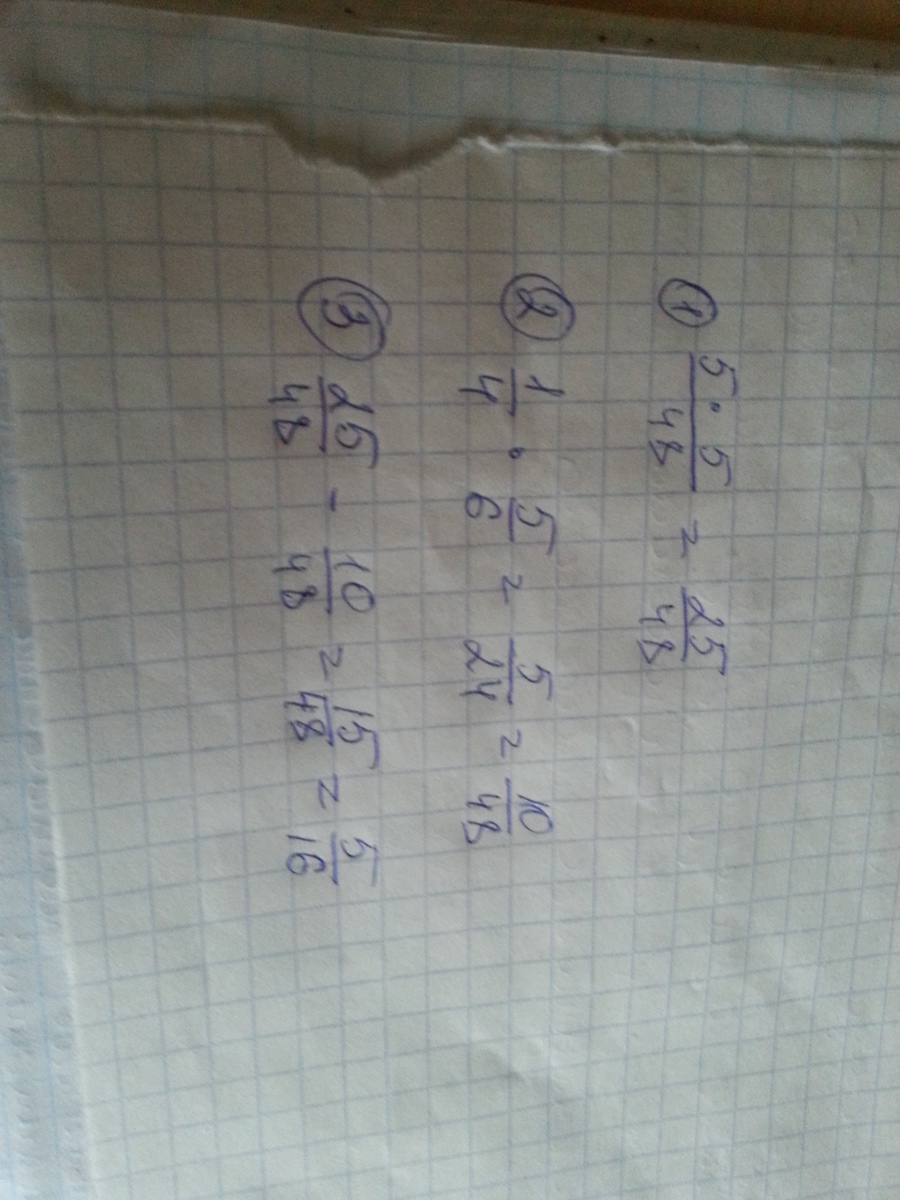 ① 5·5/48 = 25/48
② 1/4 · 5/6 = 5/24 = 10/48
③ 25/48 - 10/48 = 15/48 = 5/16